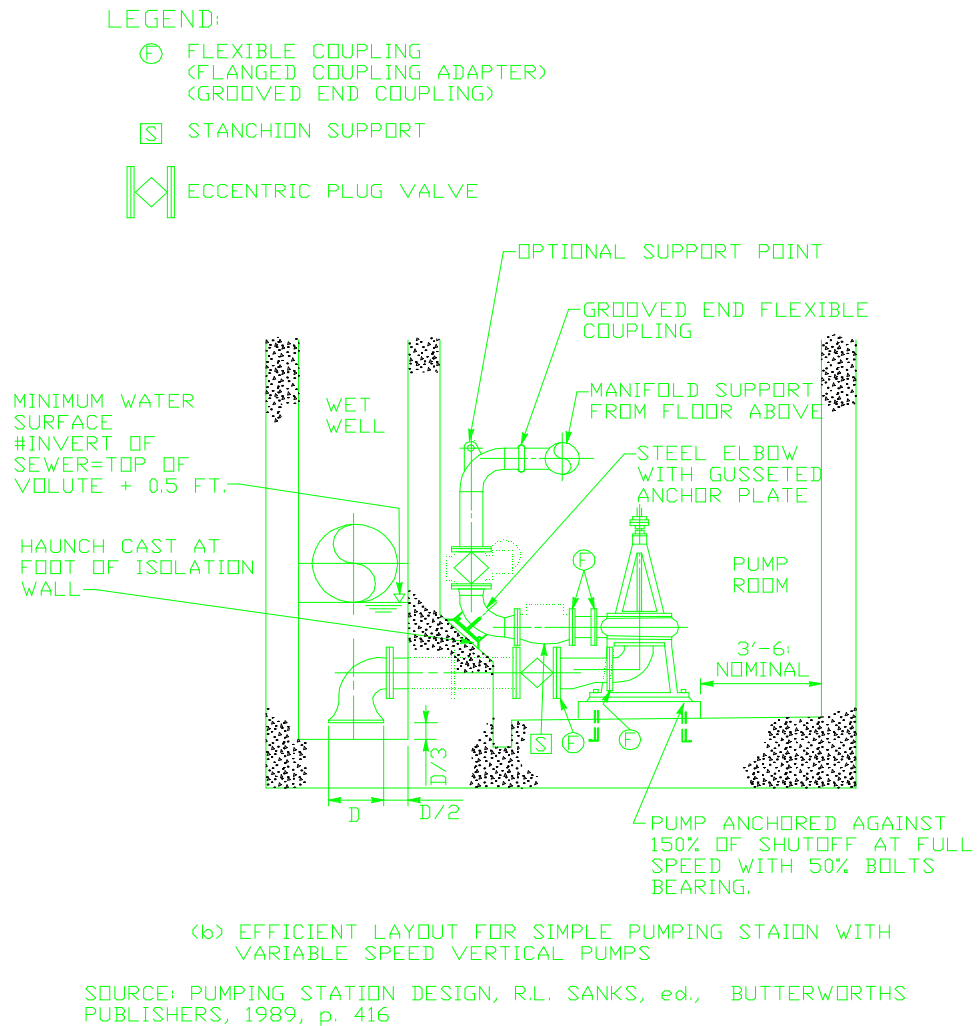 LEGEND:
F
FLEXIBLE COUPLING
(FLANGED COUPLING ADAPTER)
(GROOVED END COUPLING)
S
STANCHION SUPPORT
ECCENTRIC PLUG VALVE
OPTIONAL SUPPORT POINT
GROOVED END FLEXIBLE
COUPLING
MANIFOLD SUPPORT
FROM FLOOR ABOVE
MINIMUM WATER
SURFACE
#INVERT OF
SEWER=TOP OF
VOLUTE + 0.5 FT.
WET
WELL
STEEL ELBOW
WITH GUSSETED
ANCHOR PLATE
HAUNCH CAST AT
FOOT OF ISOLATION
WALL
F
PUMP
ROOM
3'-6:
NOMINAL
S
F
F
D/3
D
D/2
PUMP ANCHORED AGAINST
150% OF SHUTOFF AT FULL
SPEED WITH 50% BOLTS
BEARING.
(b) EFFICIENT LAYOUT FOR SIMPLE PUMPING STAION WITH
VARIABLE SPEED VERTICAL PUMPS
SOURCE: PUMPING STATION DESIGN, R.L. SANKS, ed., BUTTERWORTHS
PUBLISHERS, 1989, p. 416